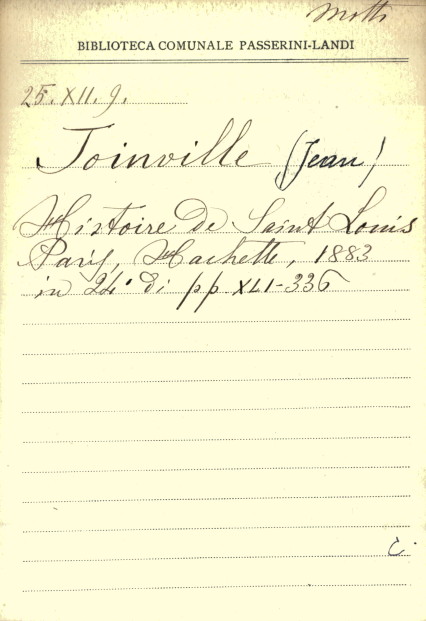 Motti
BIBLIOTECA COMUNALE PASSERINI-LANDI
25. XII. 9.
Joinville (Jean)
Histoire de Saint Louis
Paris, Hachette, 1883
in 24° di pp. XLI-336
C.